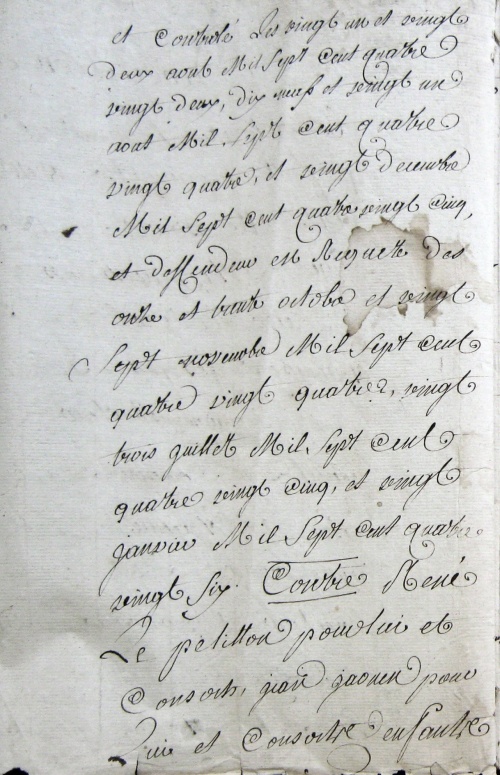 et Controlé Les vingt un et vingt
deux aout Mil Sept Cent quatre
vingt deux, dix neuf et vingt un
aout Mil Sept Cent quatre
vingt quatre, et vingt decembre
Mil Sept Cent quatre vingt Cinq,
et deffendeur en Requete des
onze et trente octobre et vingt
Sept novembre Mil Sept Cent
quatre vingt quatre, vingt
trois juillet Mil Sept Cent
quatre vingt Cinq, et vingt
janvier Mil Sept Cent quatre
vingt Six. Contre René
Le petitton pour lui et
Consorts, jean jaouen pour
Lui et Consorts deffautre